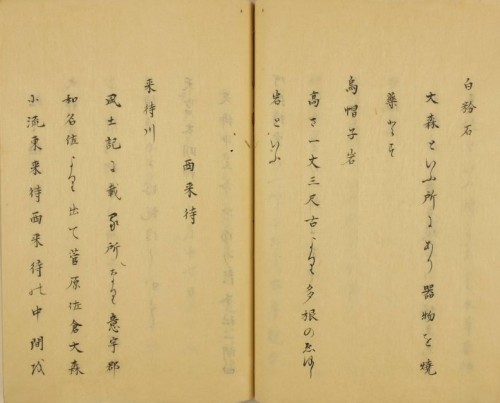 白粉石
大森といふ所にあり器物を焼
薬とす
烏帽子岩
高さ一丈三尺古より多根の
岩といふ
西来待
来待川
風土記に載る所なり意宇郡
和名佐より出て菅原佐倉大森
小流東来待西来待の中間を